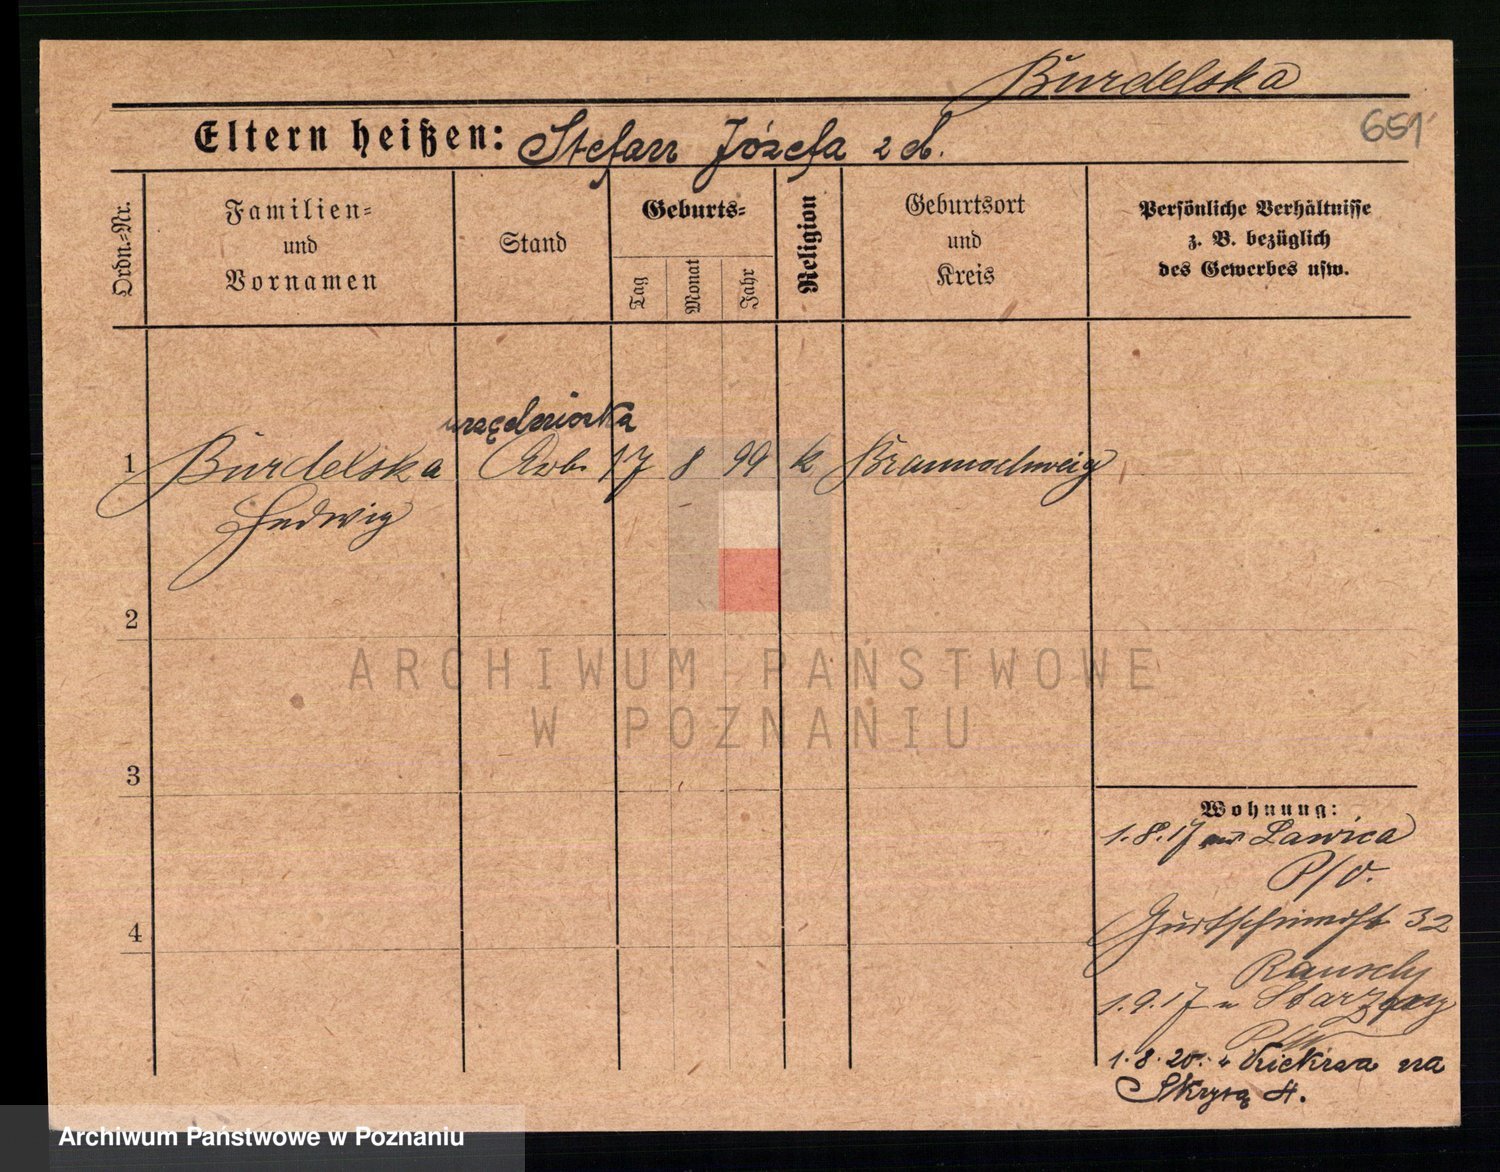 Burdelska
651
Eltern heißen: Stefan Józefa z d.
Ordn.-Nr.
Familien-
und
Vornamen
Stand
Geburts-
Tag
Monat
Jahr
Religion
Geburtsort
und
Kreis
Persönliche Verhältnisse
z. B. bezüglich
des Gewerbes usw.
urzędniczka
1 Burdelska Arb. 17 8 99 k Braunschweig
Hedwig
2
ARCHIWUM PAŃSTWOWE
W POZNANIU
3
Wohnung:
1.8.17 Lawica
P/O.
4
32
Rausch
1.9.17 n
1.8.20. Kiekrza na
Skrytą 4.
Archiwum Państwowe w Poznaniu